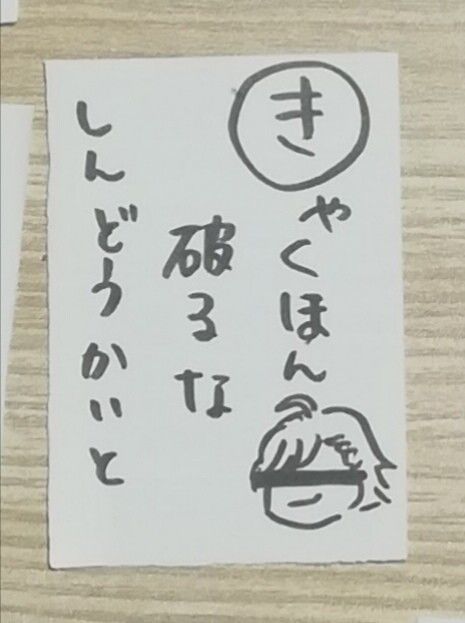 きゃくほん
破るな
しんどうかいと